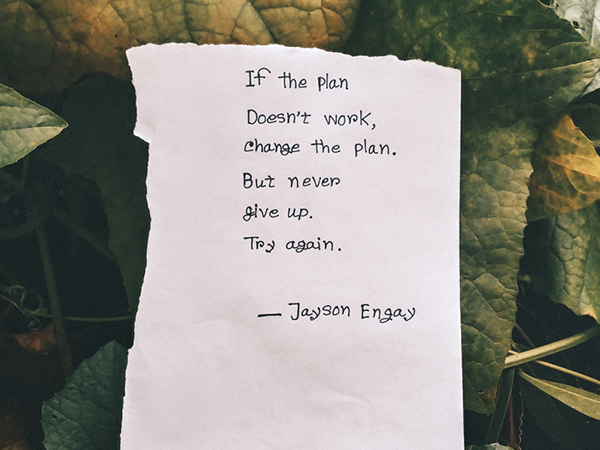 If the plan
Doesn't work,
change the plan.
But never
give up.
Try again.
— Jayson Engay